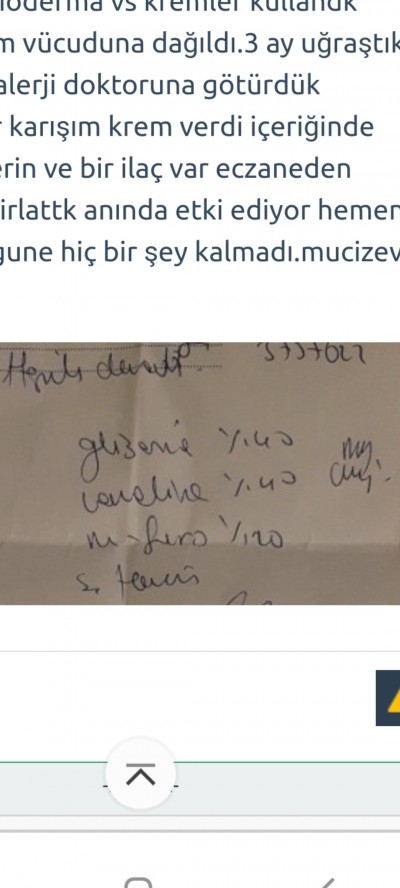 ioderma vs kremler kullandk
m vücuduna dağıldı.3 ay uğraştık
alerji doktoruna götürdük
r karışım krem verdi içeriğinde
erin ve bir ilaç var eczaneden
ırlattk anında etki ediyor hemen
gune hiç bir şey kalmadı.mucizev
glizerin %40
vaneline %40
%20